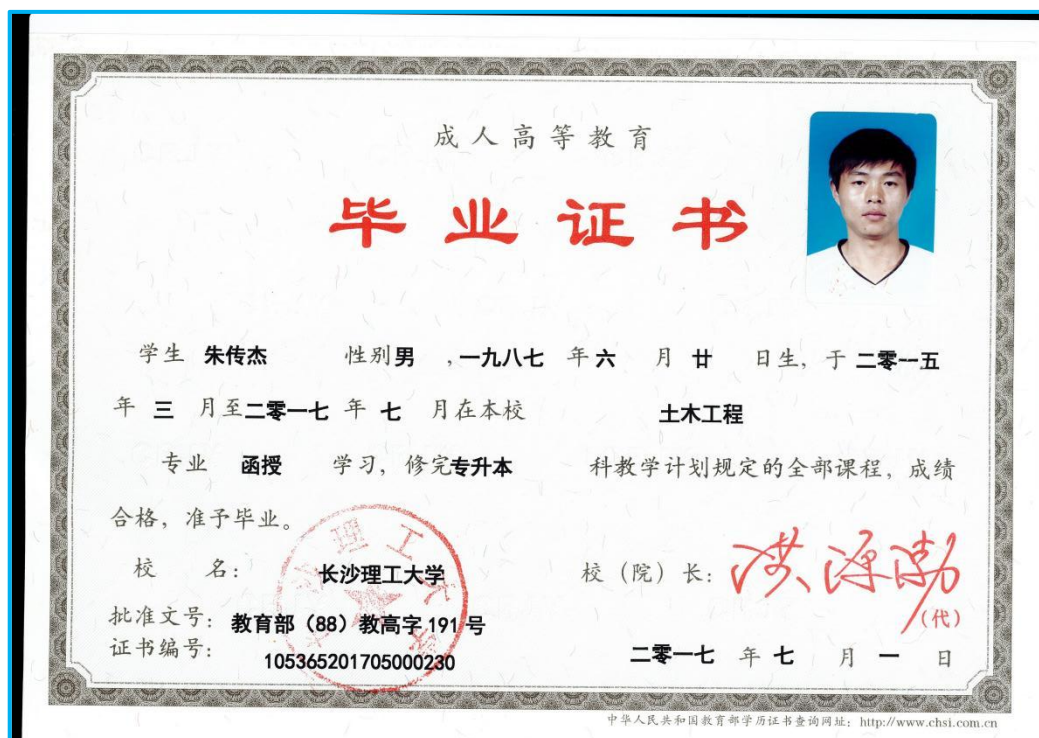 成人高等教育
毕业证书
学生 朱传杰 性别男 ,一九八七 年 六 月 廿 日生, 于 二零一五
年 三 月至二零一七 年 七 月在本校 土木工程
专业 函授 学习, 修完专升本 科教学计划规定的全部课程, 成绩
合格, 准予毕业。
校 名: 长沙理工大学 校(院)长: 洪源渤
(代)
批准文号: 教育部(88)教高字 191 号
证书编号: 105365201705000230 二零一七 年 七 月 一 日
长沙理工大学
中华人民共和国教育部学历证书查询网址: http://www.chsi.com.cn